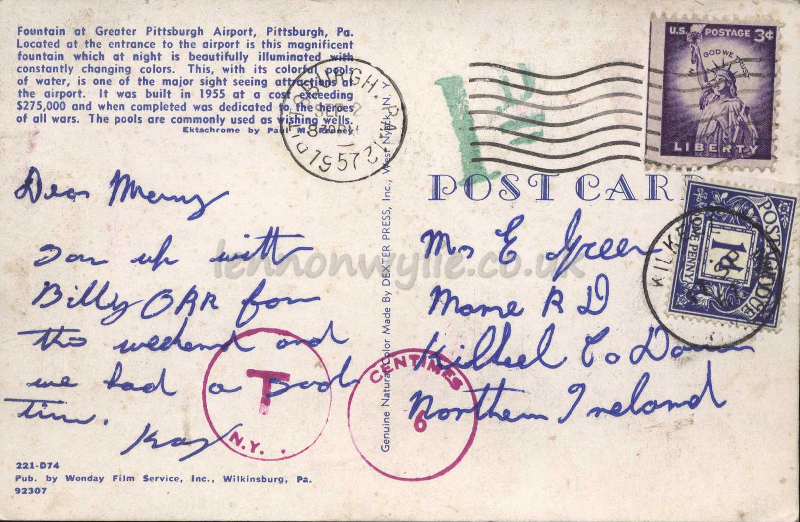 Fountain at Greater Pittsburgh Airport, Pittsburgh, Pa.
Located at the entrance to the airport is this magnificent
fountain which at night is beautifully illuminated with
constantly changing colors. This, with its colorful pools
of water, is one of the major sight seeing attractions at
the airport. It was built in 1955 at a cost exceeding
$275,000 and when completed was dedicated to the heroes
of all wars. The pools are commonly used as wishing wells.
Ektachrome by Paul M.
PITTSBURGH, PA.
SEP 2
8
1957
U.S. POSTAGE 3¢
IN GOD WE TRUST
LIBERTY
POST CARD
POSTAGE DUE
1d.
ONE PENNY
KILKEEL
Dear Merny
Son up with
Billy ORR for
the weekend and
we had a good
time.
Kay
Mrs E Green
Mourne R D
Kilkeel Co Down
Northern Ireland
T
N.Y.
CENTIMES
6
Genuine Natural Color Made By DEXTER PRESS, Inc., West Nyack, N. Y.
221-D74
Pub. by Wonday Film Service, Inc., Wilkinsburg, Pa.
92307
lennonwylie.co.uk